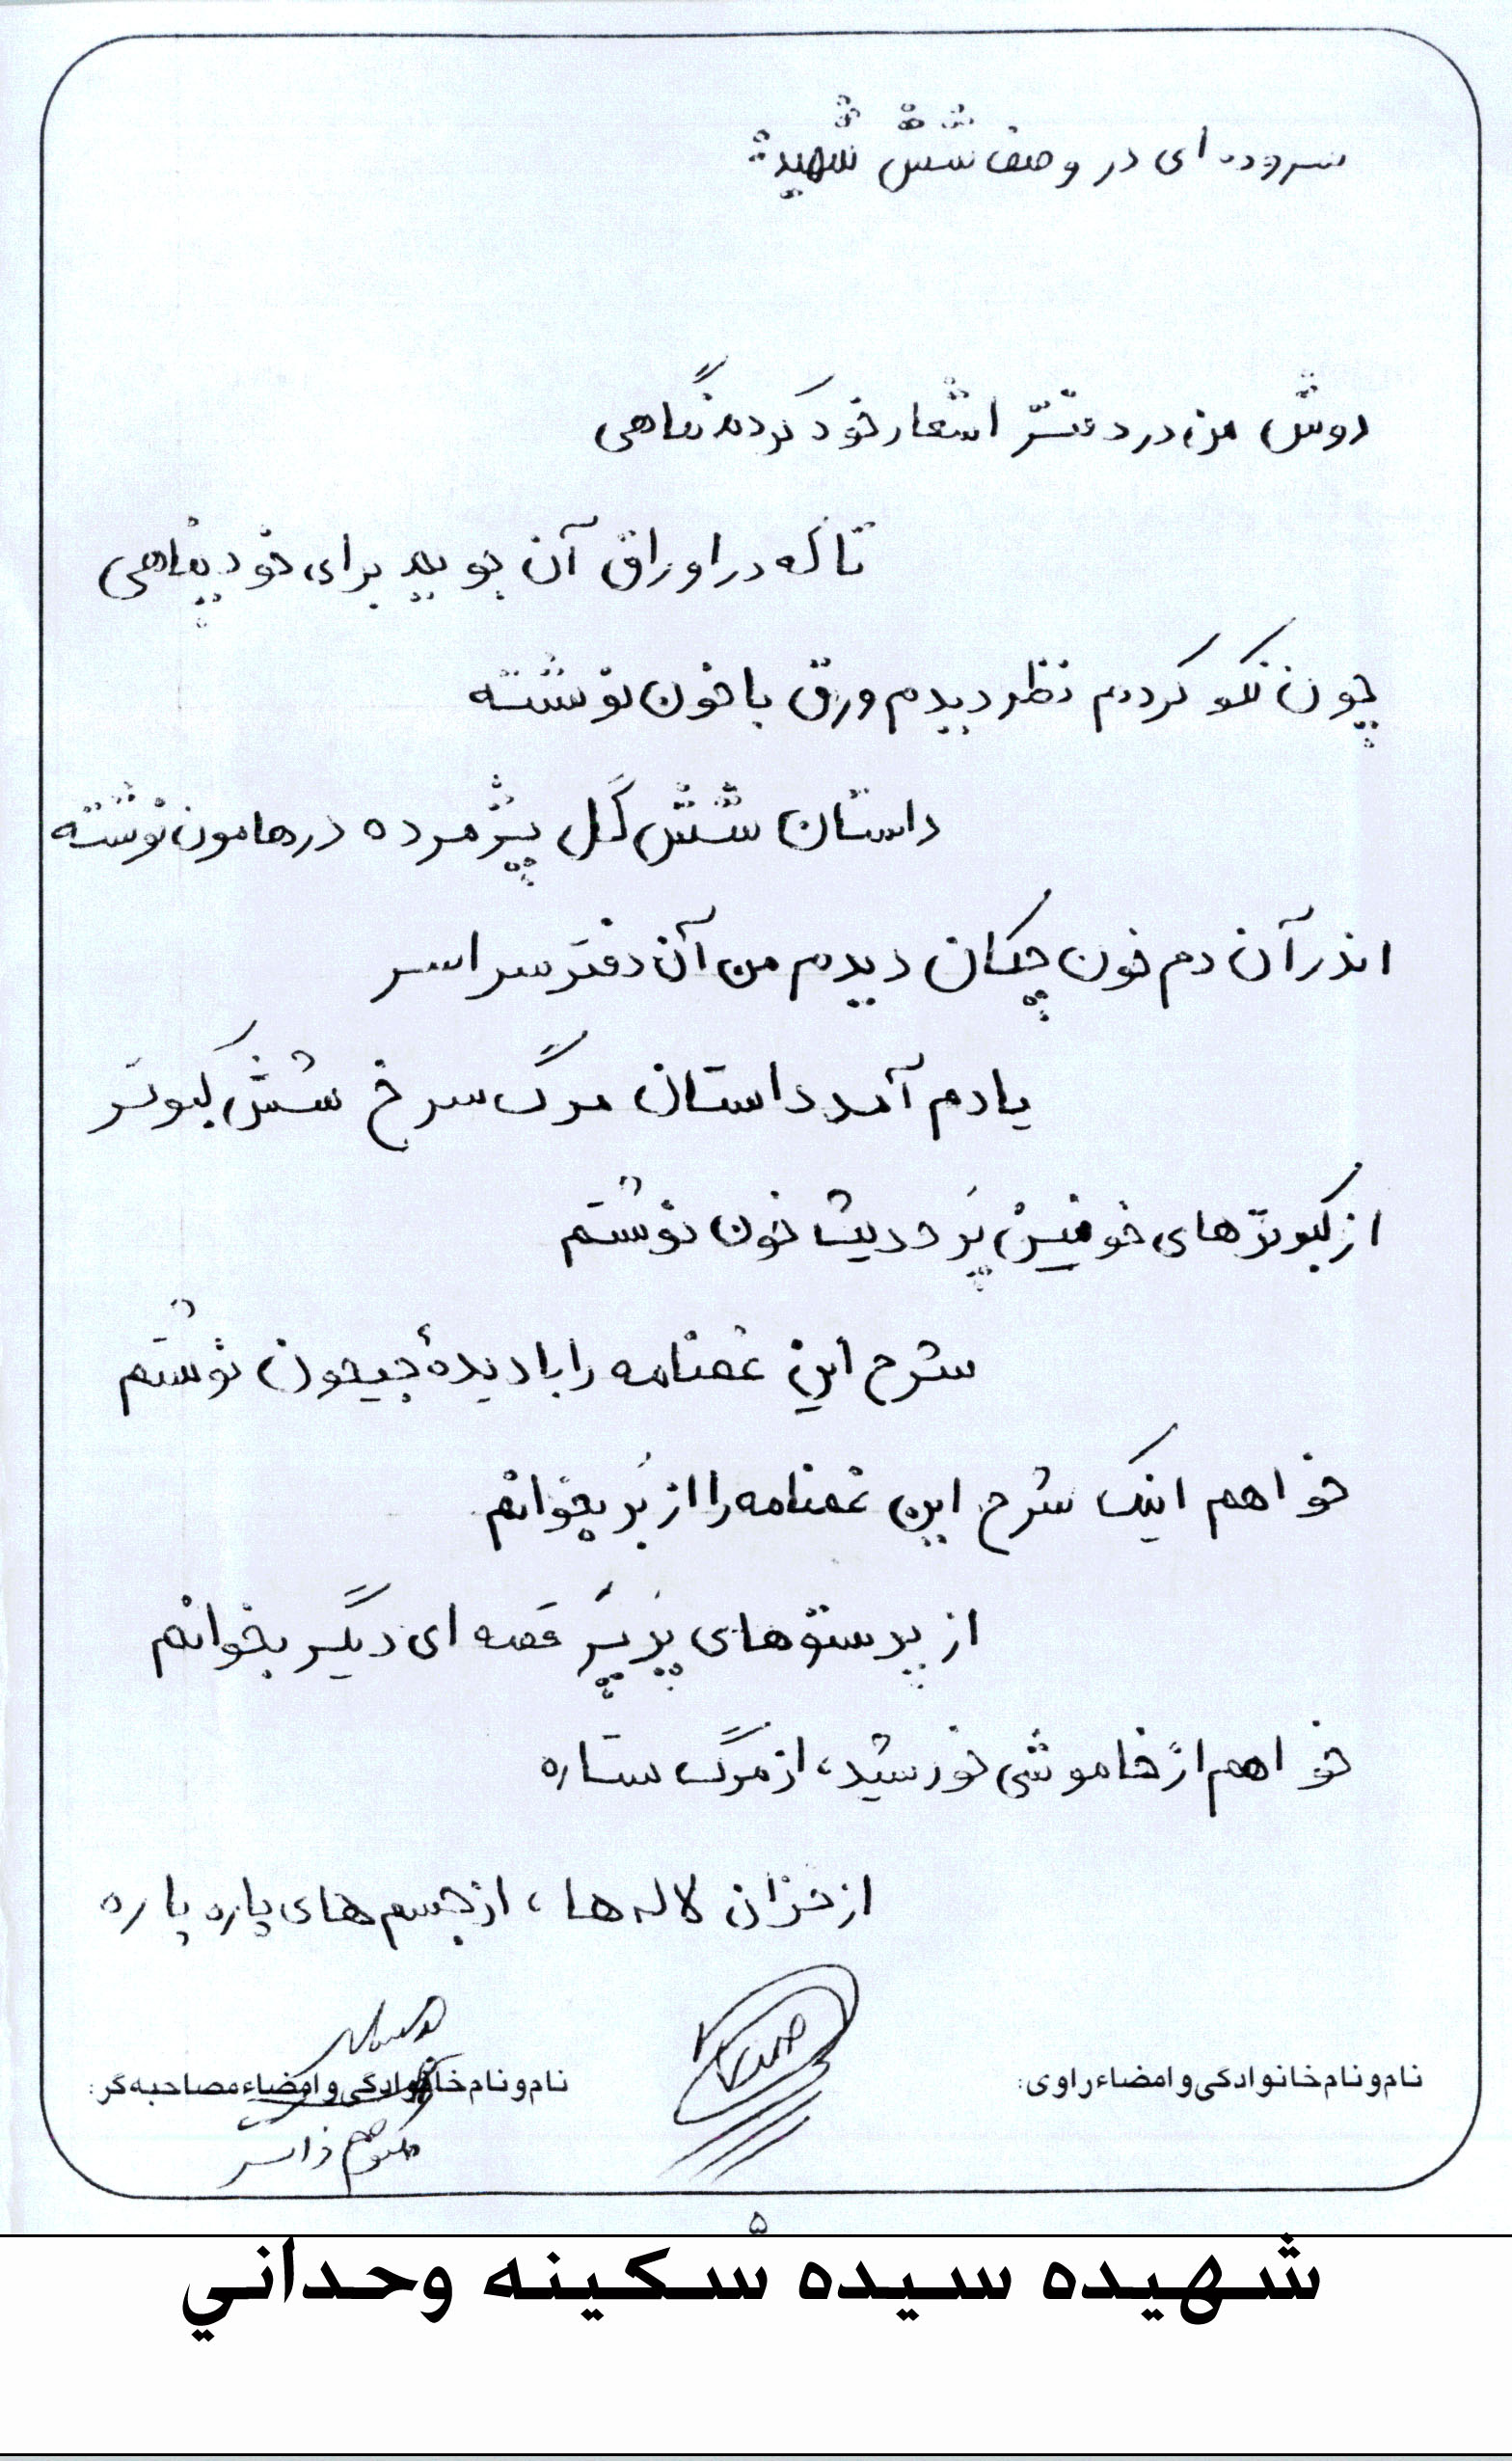 سروده ای در وصف شش شهیده
دوش من در دفتر اشعار خود کردم نگاهی
تا که در اوراق آن جویم برای خود پناهی
چون نکو کردم نظر دیدم ورق با خون نوشته
داستان شش گل پژمرده در هامون نوشته
اندر آن دم خون چکان دیدم من آن دفتر سراسر
یادم آمد داستان مرگ سرخ شش کبوتر
از کبوترهای خونین پَر حدیث خون نوشتم
شرح این غمنامه را با دیدهٔ جیحون نوشتم
خواهم اینک شرح این غمنامه را از بَر بخوانم
از پرستوهای پَرپَر قصه ای دیگر بخوانم
خواهم از خاموشی خورشید، از مرگ ستاره
از خزان لاله ها، از جسم های پاره پاره
نام و نام خانوادگی و امضاء راوی:
نام و نام خانوادگی و امضاء مصاحبه گر:
۵
شهیده سیده سکینه وحداني